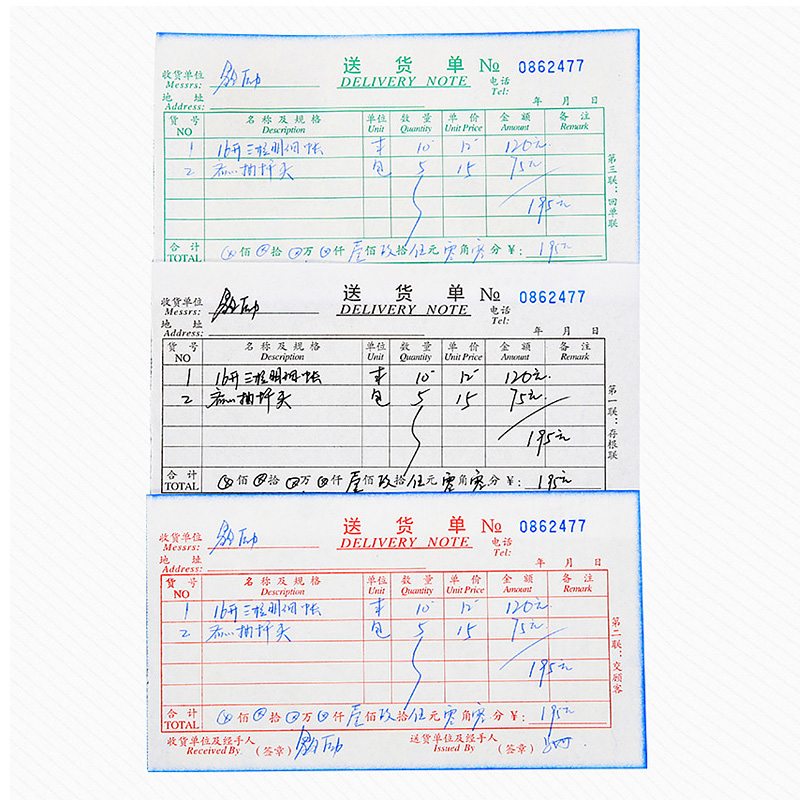 送 货 单 № 0862477
DELIVERY NOTE
收货单位
Messrs:
电话
Tel:
地 址
Address:
年 月 日
货 号 名称及规格 单位 数 量 单 价 金 额 备 注
NO Description Unit Quantity Unit Price Amount Remark
1 16开三栏明细帐 本 10 12 120元
2 包 5 15 75元
195元
第三联：回单联
合 计 佰 拾 万 仟 壹佰玖拾伍元零角零分 ¥: 195元
TOTAL
送 货 单 № 0862477
DELIVERY NOTE
收货单位
Messrs:
电话
Tel:
地 址
Address:
年 月 日
货 号 名称及规格 单位 数 量 单 价 金 额 备 注
NO Description Unit Quantity Unit Price Amount Remark
1 16开三栏明细帐 本 10 12 120元
2 包 5 15 75元
195元
第一联：存根联
合 计 佰 拾 万 仟 壹佰玖拾伍元零角零分 ¥: 195元
TOTAL
送 货 单 № 0862477
DELIVERY NOTE
收货单位
Messrs:
电话
Tel:
地 址
Address:
年 月 日
货 号 名称及规格 单位 数 量 单 价 金 额 备 注
NO Description Unit Quantity Unit Price Amount Remark
1 16开三栏明细帐 本 10 12 120元
2 包 5 15 75元
195元
第二联：交顾客
合 计 佰 拾 万 仟 壹佰玖拾伍元零角零分 ¥: 195元
TOTAL
收货单位及经手人 (签章) 送货单位及经手人 (签章)
Received By Issued By